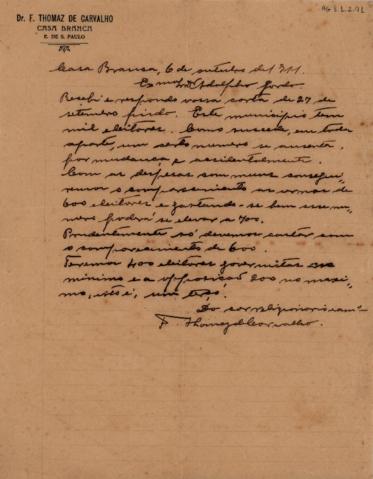 AG 3.1.2.91
Dr. F. THOMAZ DE CARVALHO
CASA BRANCA
E. DE S. PAULO
Casa Branca, 6 de outubro de 1911.
Exmo Dr. Adolpho Gordo
Recebi e respondo vossa carta de 27 de
setembro findo. Este municipio tem
mil eleitores. Como succede, em toda
a parte, um certo numero se ausenta
por mudança e accidentalmente.
Com as despesas communs consegui-
remos o comparecimento às urnas de
600 eleitores e gastando-se bem esse nu-
mero poderá se elevar a 700.
Prudentemente só devemos contar com
o comparecimento de 600.
Teremos 400 eleitores governistas no
minimo e a opposição 200 no maxi-
mo, isto é, um terço.
Do correligionario
F. Thomaz de Carvalho.